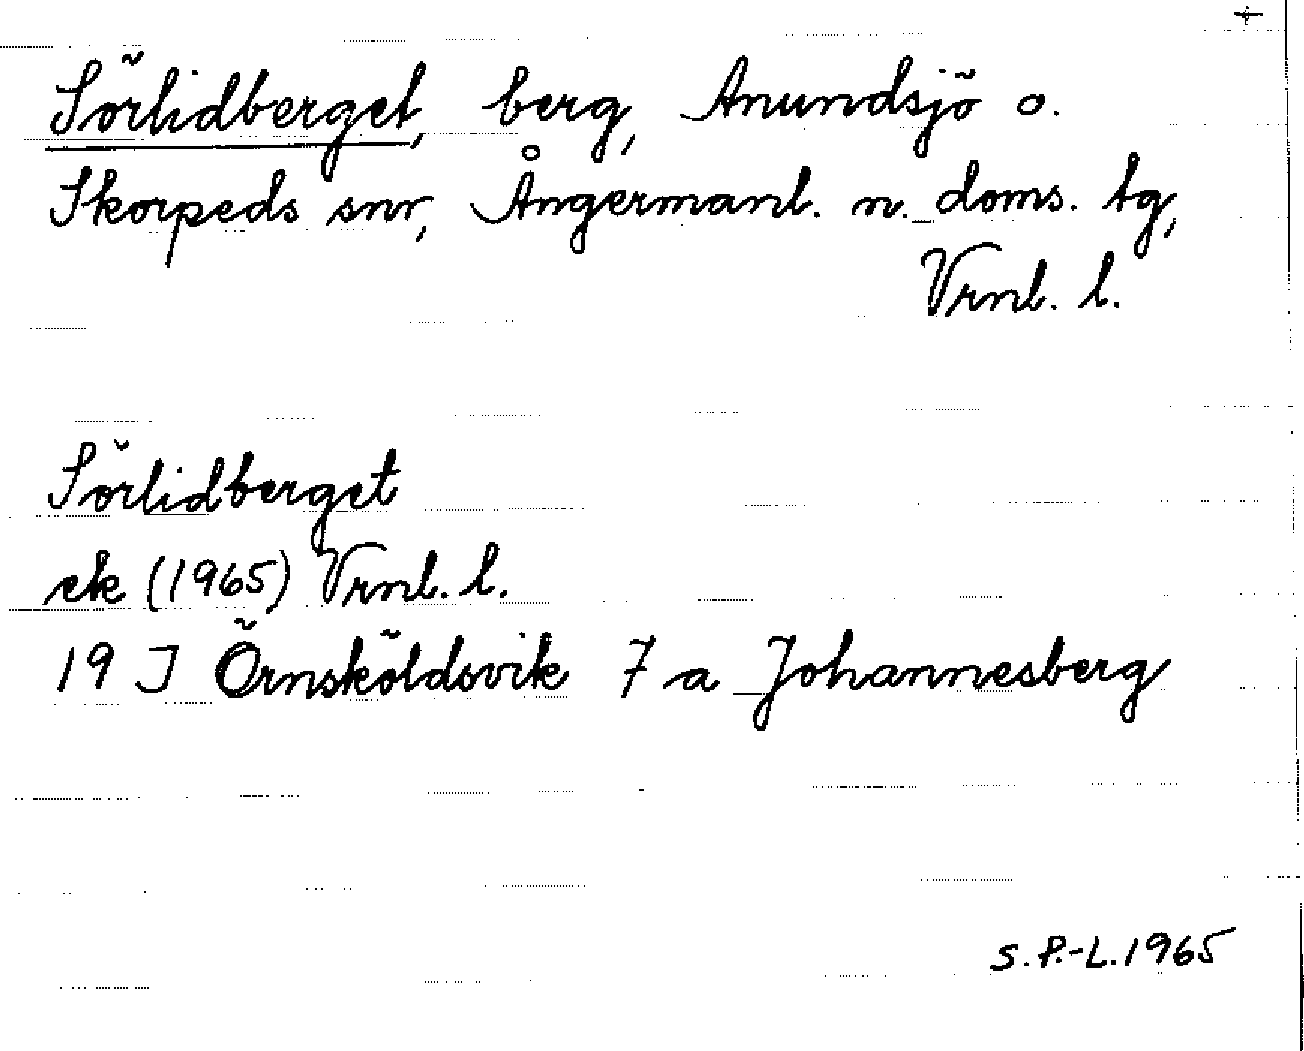 +
Sörlidberget, berg, Anundsjö o.
Skorpeds snr, Ångermanl. n. doms. tg,
Vrnl. l.
Sörlidberget
ek (1965) Vrnl. l.
19 J Örnsköldsvik 7 a Johannesberg
S. P.-L. 1965